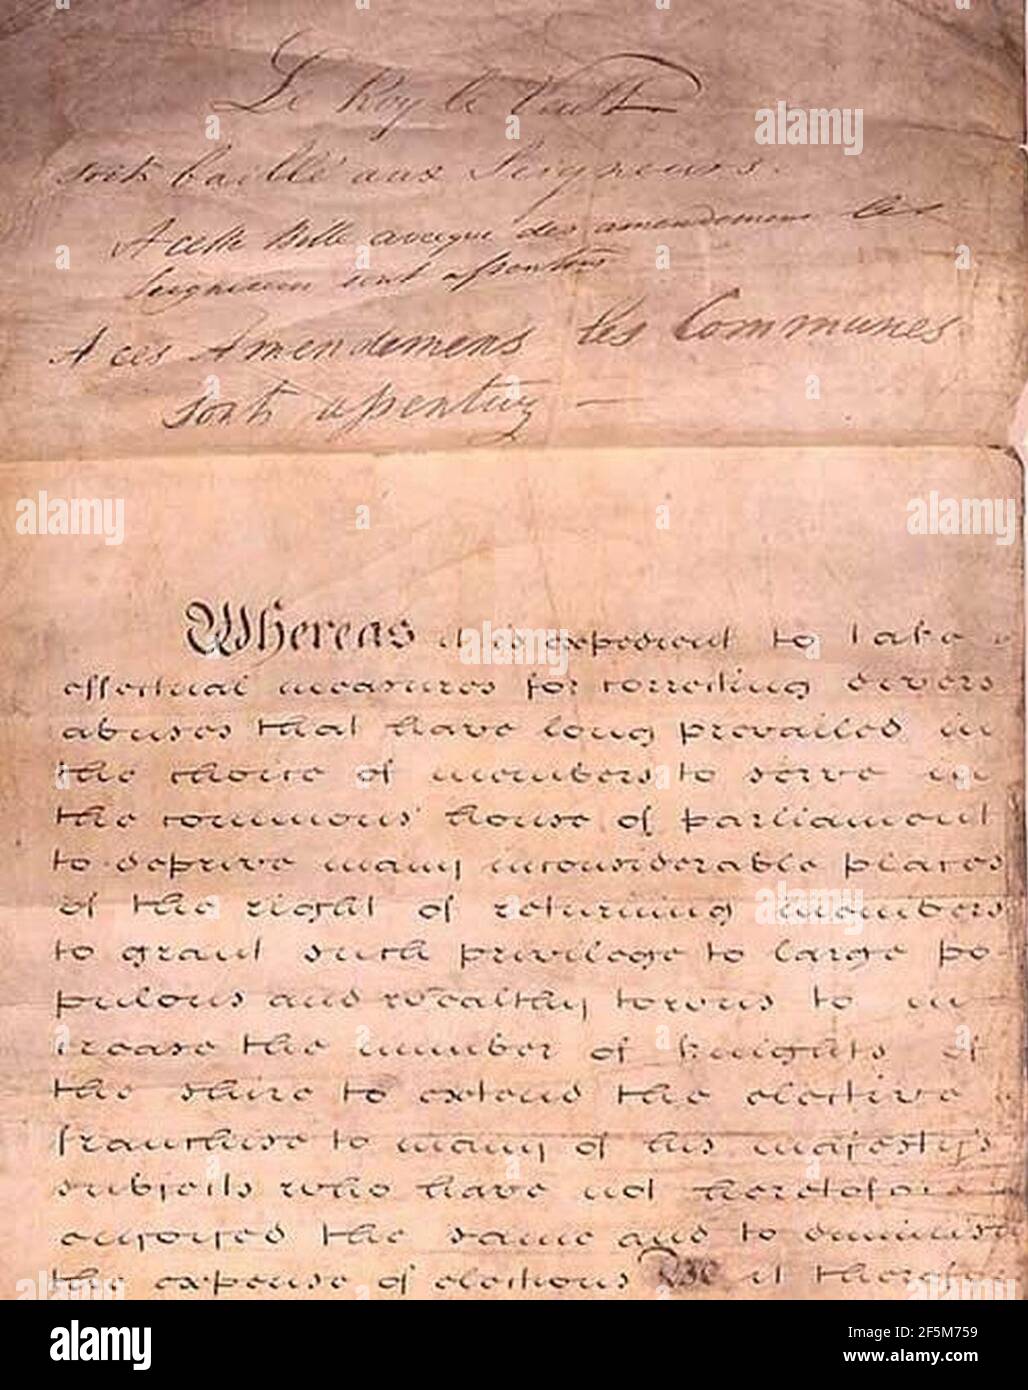 Le Roy le Veult
soit baillé aux Seigneurs.
A cette Bille avecque des amendemens les
Seigneurs sont assentus
A ces Amendemens les Communes
sont assentuz —
Whereas it is expedient to take
effectual measures for correcting divers
abuses that have long prevailed in
the choice of members to serve in
the commons' house of parliament
to deprive many inconsiderable places
of the right of returning members
to grant such privilege to large po-
pulous and wealthy towns to in
crease the number of knights of
the shire to extend the elective
franchise to many of his majesty's
subjects who have not heretofore
enjoyed the same and to diminish
the expense of elections Be it therefore
alamy
Image ID: 2F5M759
www.alamy.com